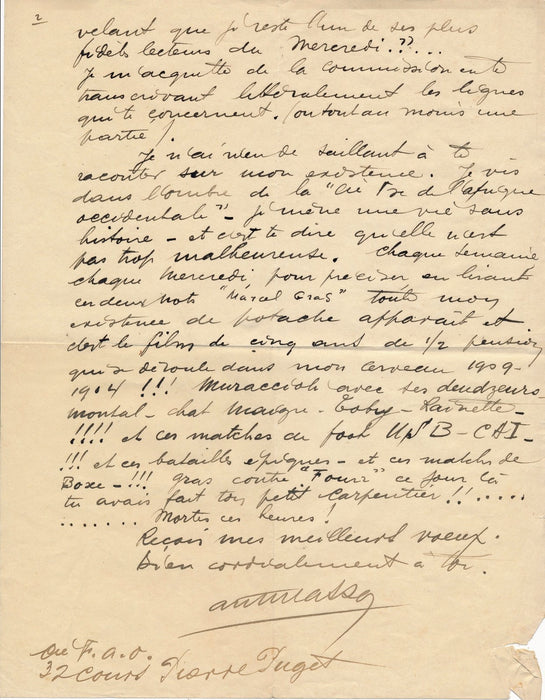 2
velant que je reste l'un de ses plus
fidèles lecteurs du Mercredi.??...
Je m'acquitte de la commission en te
transcrivant littéralement les lignes
qui te concernent. (ou tout au moins une
partie).
Je n'ai rien de saillant à te
raconter sur mon existence. Je vis
dans l'ombre de la "Cie Fse de l'Afrique
occidentale" - je mène une vie sans
histoire - et c'est te dire qu'elle n'est
pas trop malheureuse. Chaque semaine
chaque Mercredi pour préciser en lisant
ces deux mots "Marcel Gras" toute mon
existence de potache apparait et
c'est le film de cinq ans de 1/2 pension
qui se déroule dans mon cerveau 1909-
1914 !!! Muraccioli avec ses
montal - chat Maigre - Toby - Rainette -
!!!! et ces matches de foot USB - CAI -
!!! et ces batailles épiques - et ces matchs de
Boxe - !!! gras contre "Fourr" ce jour là
tu avais fait ton petit Carpentier !!.....
....... Mortes ces heures !
Reçois mes meilleurs voeux.
Bien cordialement à toi.
Cie F.a.o.
32 cours Pierre Puget